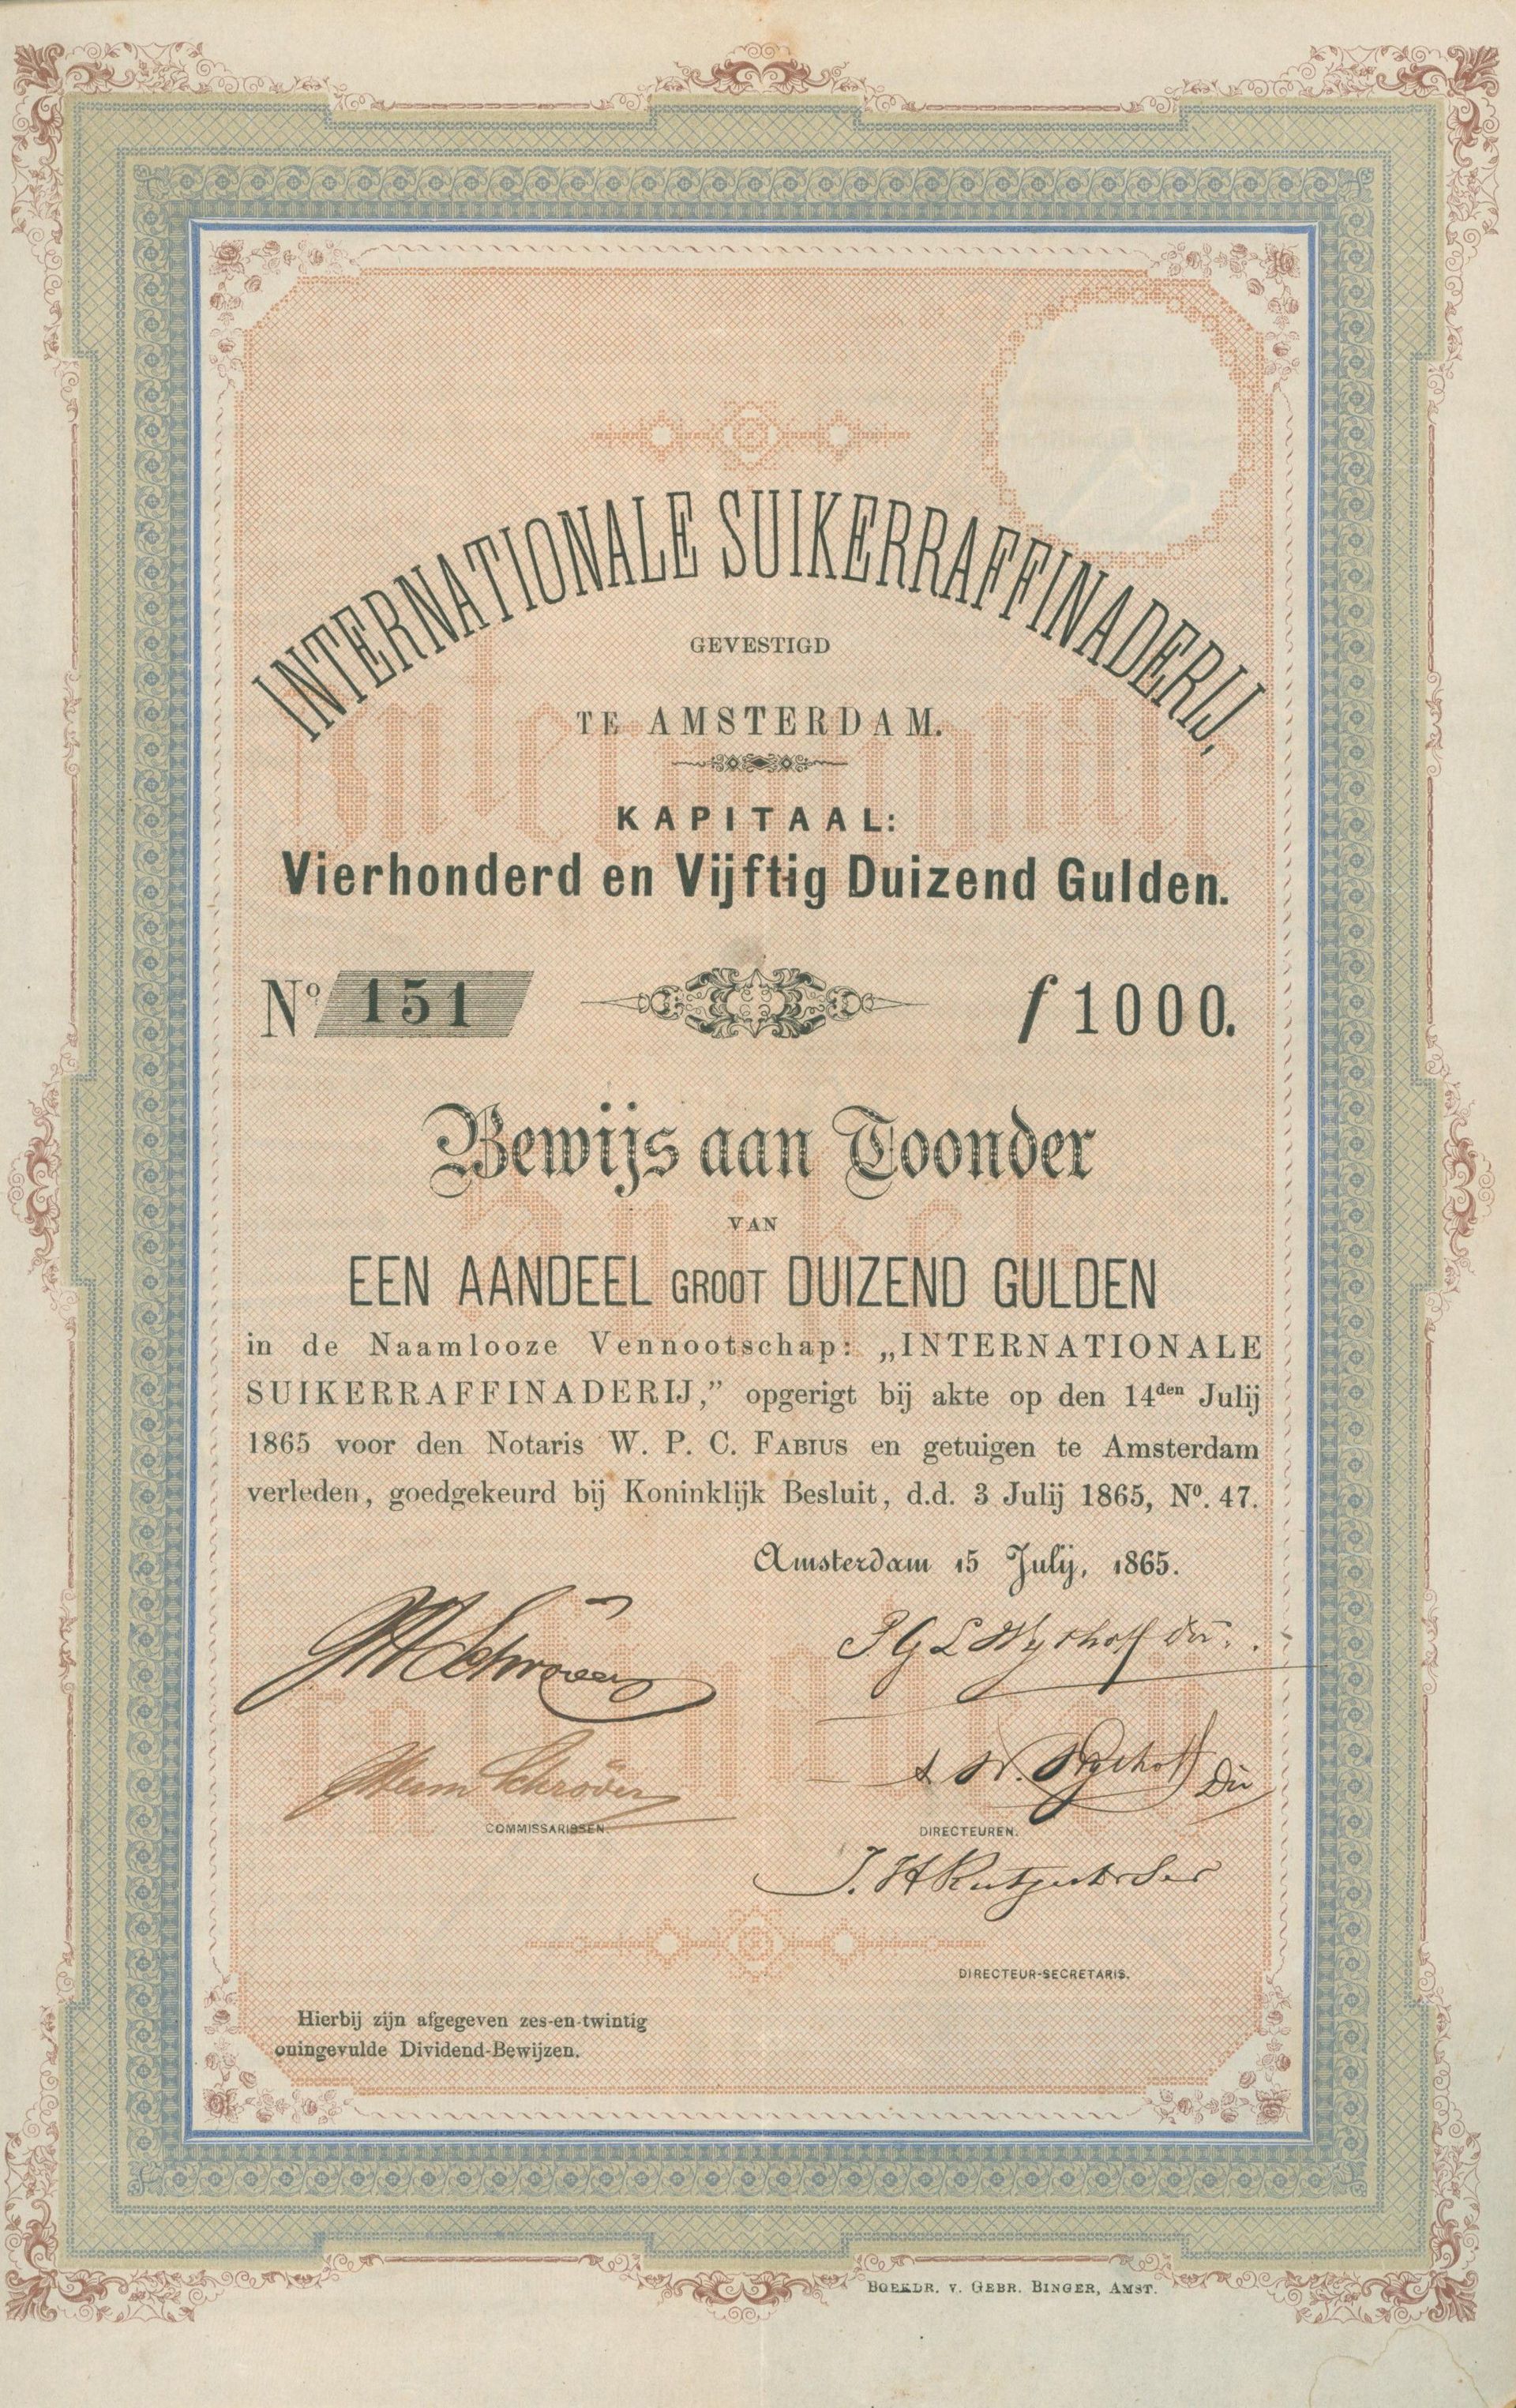 INTERNATIONALE SUIKERRAFFINADERIJ,
GEVESTIGD
TE AMSTERDAM.
KAPITAAL:
Vierhonderd en Vijftig Duizend Gulden.
Nº 151
f 1000.
Bewijs aan Toonder
VAN
EEN AANDEEL GROOT DUIZEND GULDEN
in de Naamlooze Vennootschap: „INTERNATIONALE
SUIKERRAFFINADERIJ,” opgerigt bij akte op den 14den Julij
1865 voor den Notaris W. P. C. FABIUS en getuigen te Amsterdam
verleden, goedgekeurd bij Koninklijk Besluit, d.d. 3 Julij 1865, Nº. 47.
Amsterdam 15 July, 1865.
Schröder
Herm Schröder
COMMISSARISSEN.
DIRECTEUREN.
DIRECTEUR-SECRETARIS.
Hierbij zijn afgegeven zes-en-twintig
oningevulde Dividend-Bewijzen.
BOEKDR. V. GEBR. BINGER, AMST.